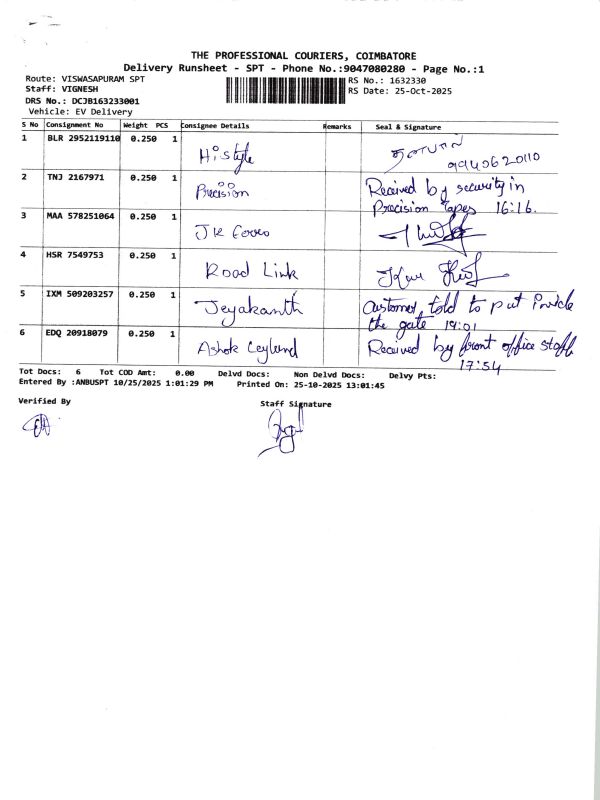 THE PROFESSIONAL COURIERS, COIMBATORE
Delivery Runsheet - SPT - Phone No.:9047080280 - Page No.:1
Route: VISWASAPURAM SPT RS No.: 1632330
Staff: VIGNESH RS Date: 25-Oct-2025
DRS No.: DCJB163233001
Vehicle: EV Delivery
S No Consignment No Weight PCS Consignee Details Remarks Seal & Signature
1 BLR 2952119110 0.250 1 Histyle
9940620110
2 TNJ 2167971 0.250 1 Precision Received by security in
Precision Tapes 16:16.
3 MAA 578251064 0.250 1 JK
4 HSR 7549753 0.250 1 Road Link
5 IXM 509203257 0.250 1 Jeyakanth Customer told to put inside
the gate 19:01
6 EDQ 20918079 0.250 1 Ashok Leyland Received by front office staff
17:54
Tot Docs: 6 Tot COD Amt: 0.00 Delvd Docs: Non Delvd Docs: Delvy Pts:
Entered By :ANBUSPT 10/25/2025 1:01:29 PM Printed On: 25-10-2025 13:01:45
Verified By Staff Signature